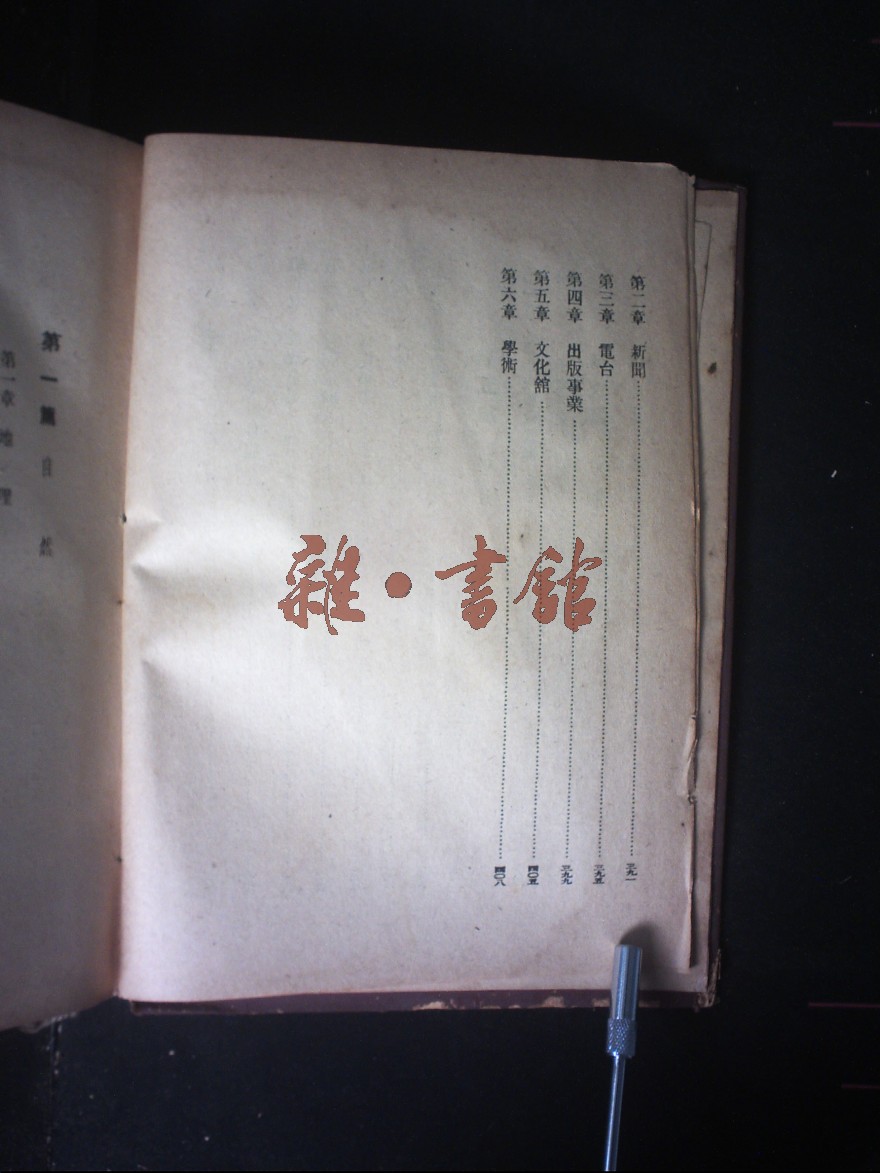 第二章 新聞……三九一
第三章 電台……三九五
第四章 出版事業……三九九
第五章 文化舘……四〇五
第六章 學術……四〇八
第一篇 自然
第一章 地理
雜·書館